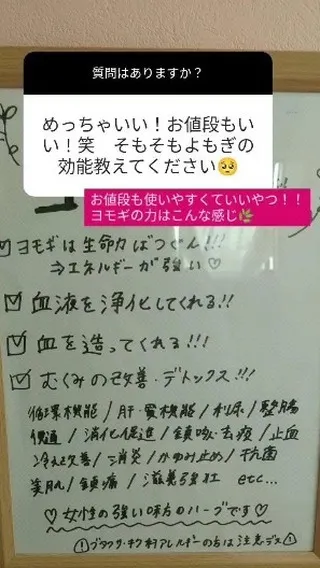 質問はありますか？
めっちゃいい！お値段もい
い！笑　そもそもよもぎの
効能教えてください🥺
お値段も使いやすくていいやつ！！
ヨモギの力はこんな感じ🌿
☑ヨモギは生命力ばつぐん!!!
⇒エネルギーが強い♡
☑血液を浄化してくれる!!
☑血を造ってくれる!!!
☑むくみの改善・デトックス!!!
循環機能/肝・腎機能/利尿/整腸
便通/消化促進/鎮咳・去痰/止血
冷え改善/消炎/かゆみ止め/抗菌
美肌/鎮痛/滋養強壮 etc...
♡女性の強い味方のハーブです♡
①ブタクサ・キク科アレルギーの方は注意デス①